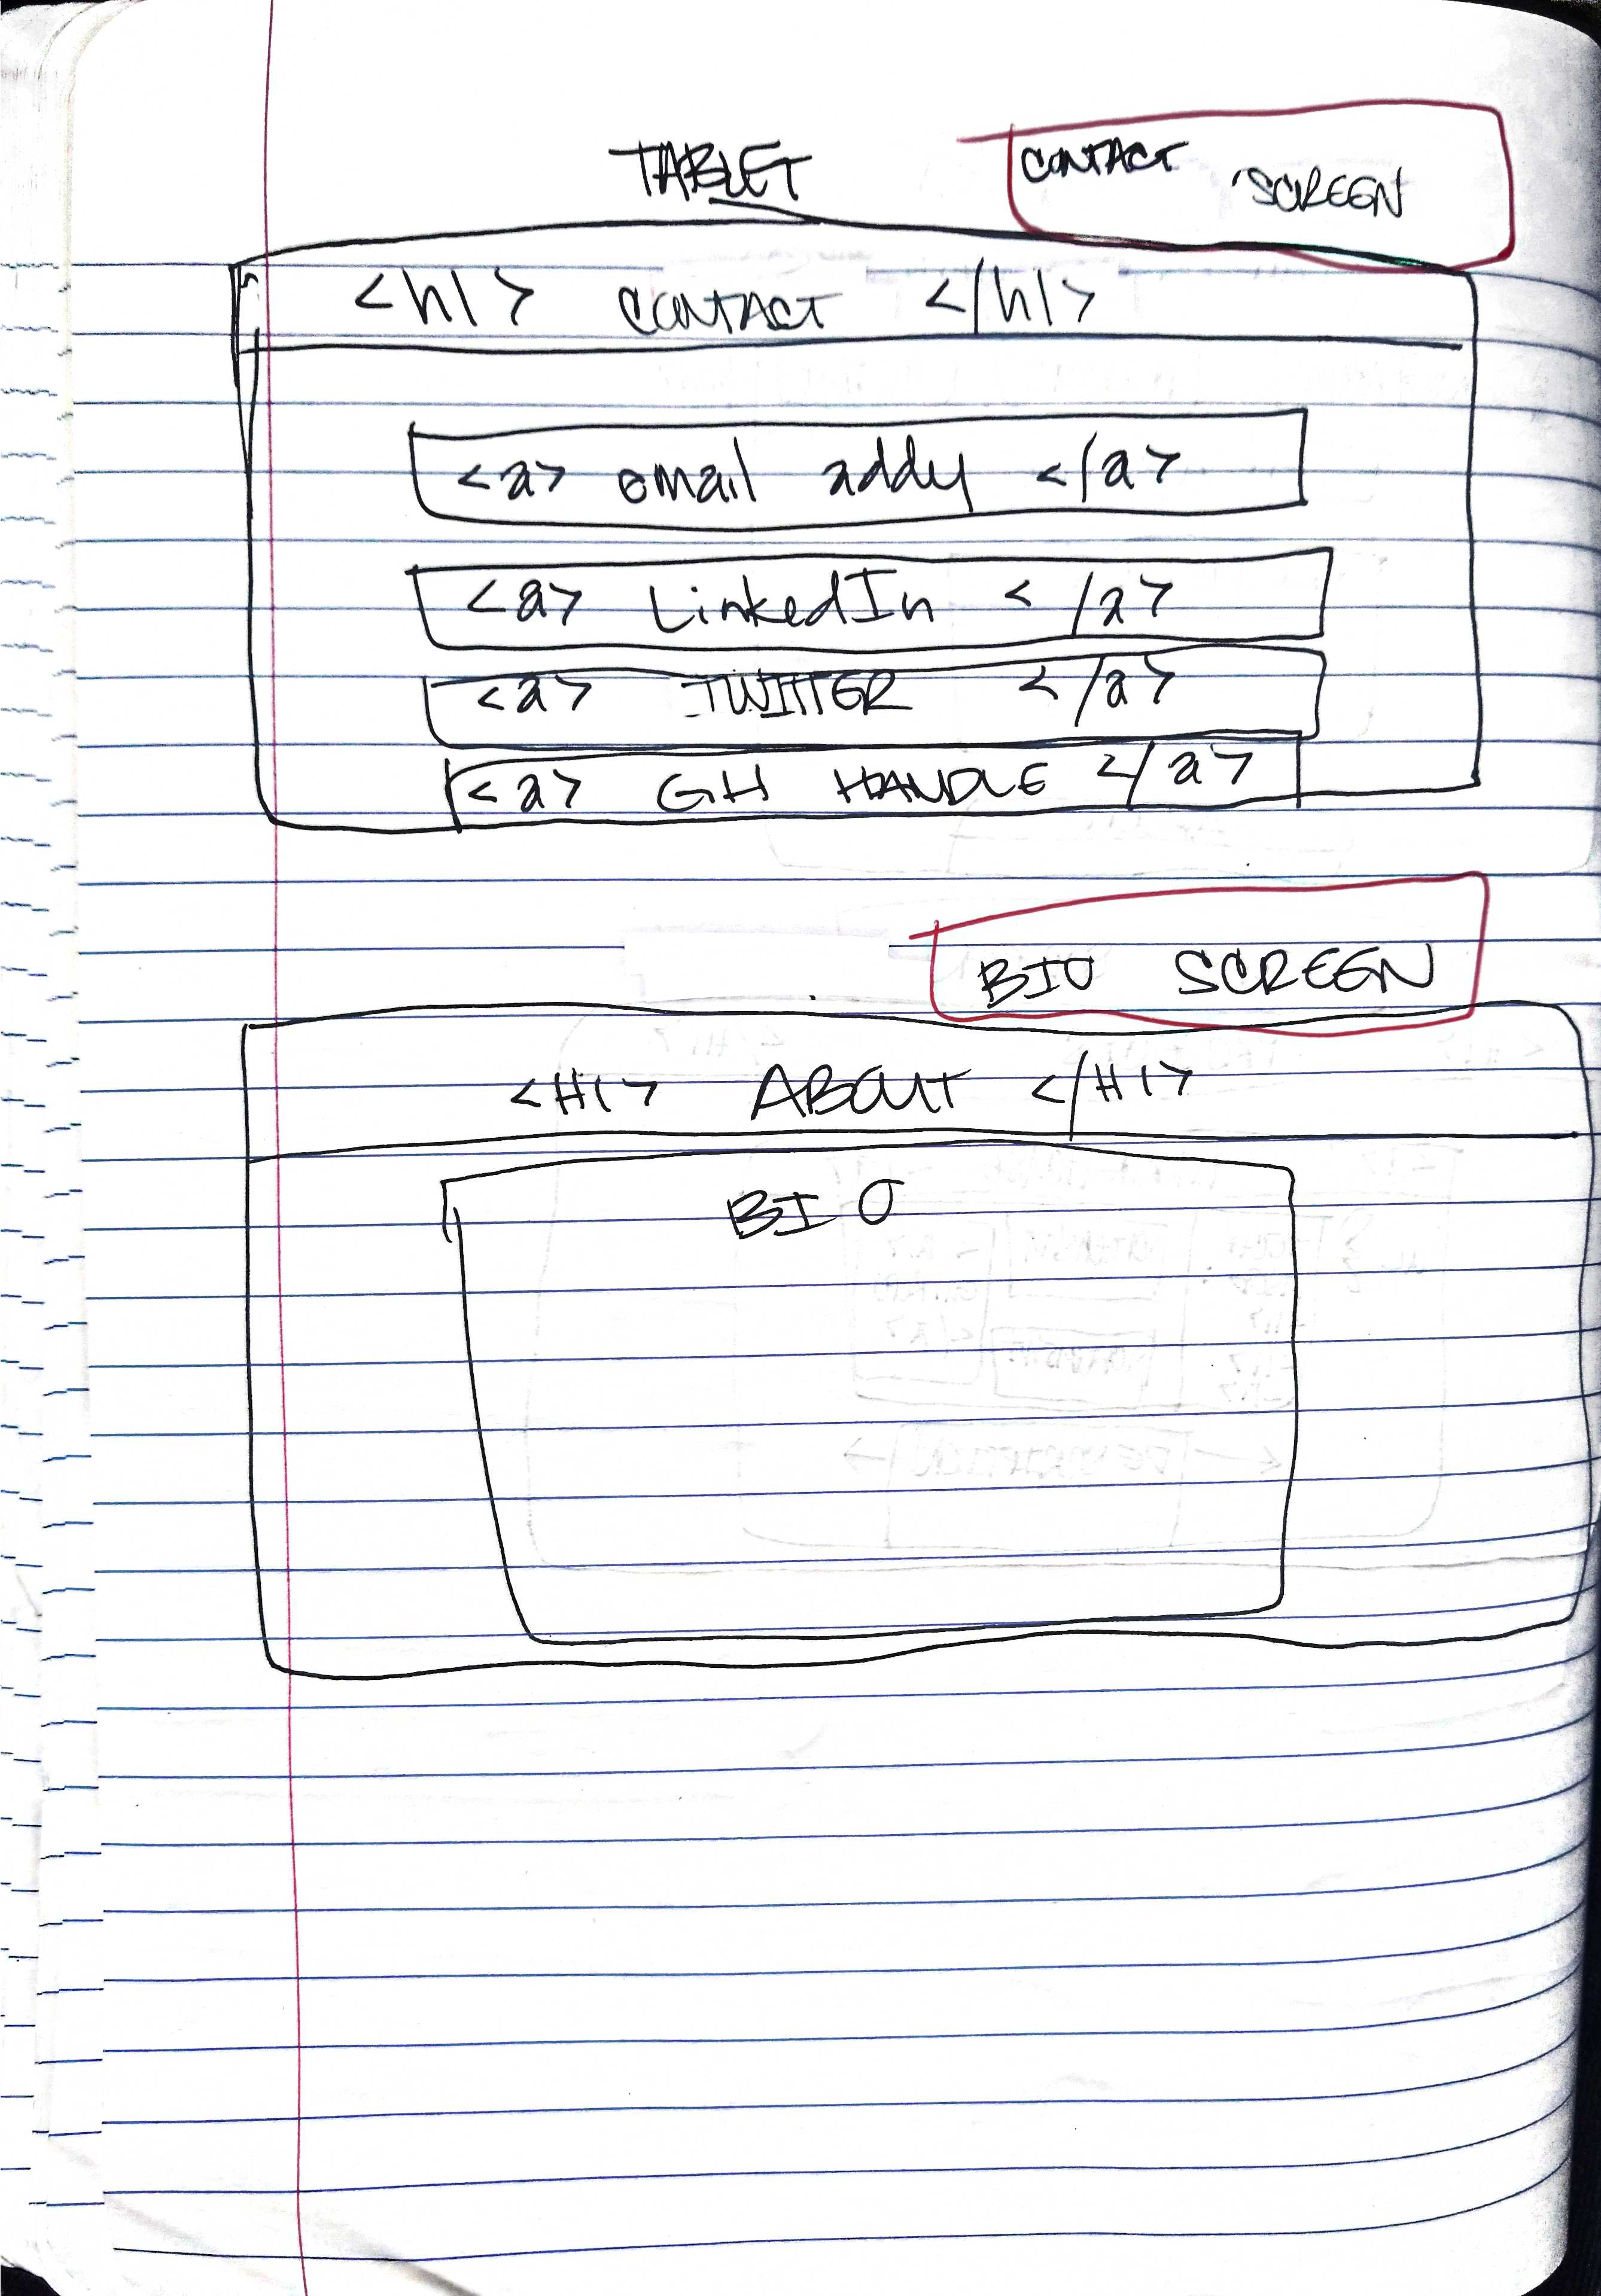 TABLET
CONTACT SCREEN
<h1> CONTACT </h1>
<a> email addy </a>
<a> LinkedIn </a>
<a> TWITTER </a>
<a> GH HANDLE </a>
BIO SCREEN
<H1> ABOUT </H1>
BIO